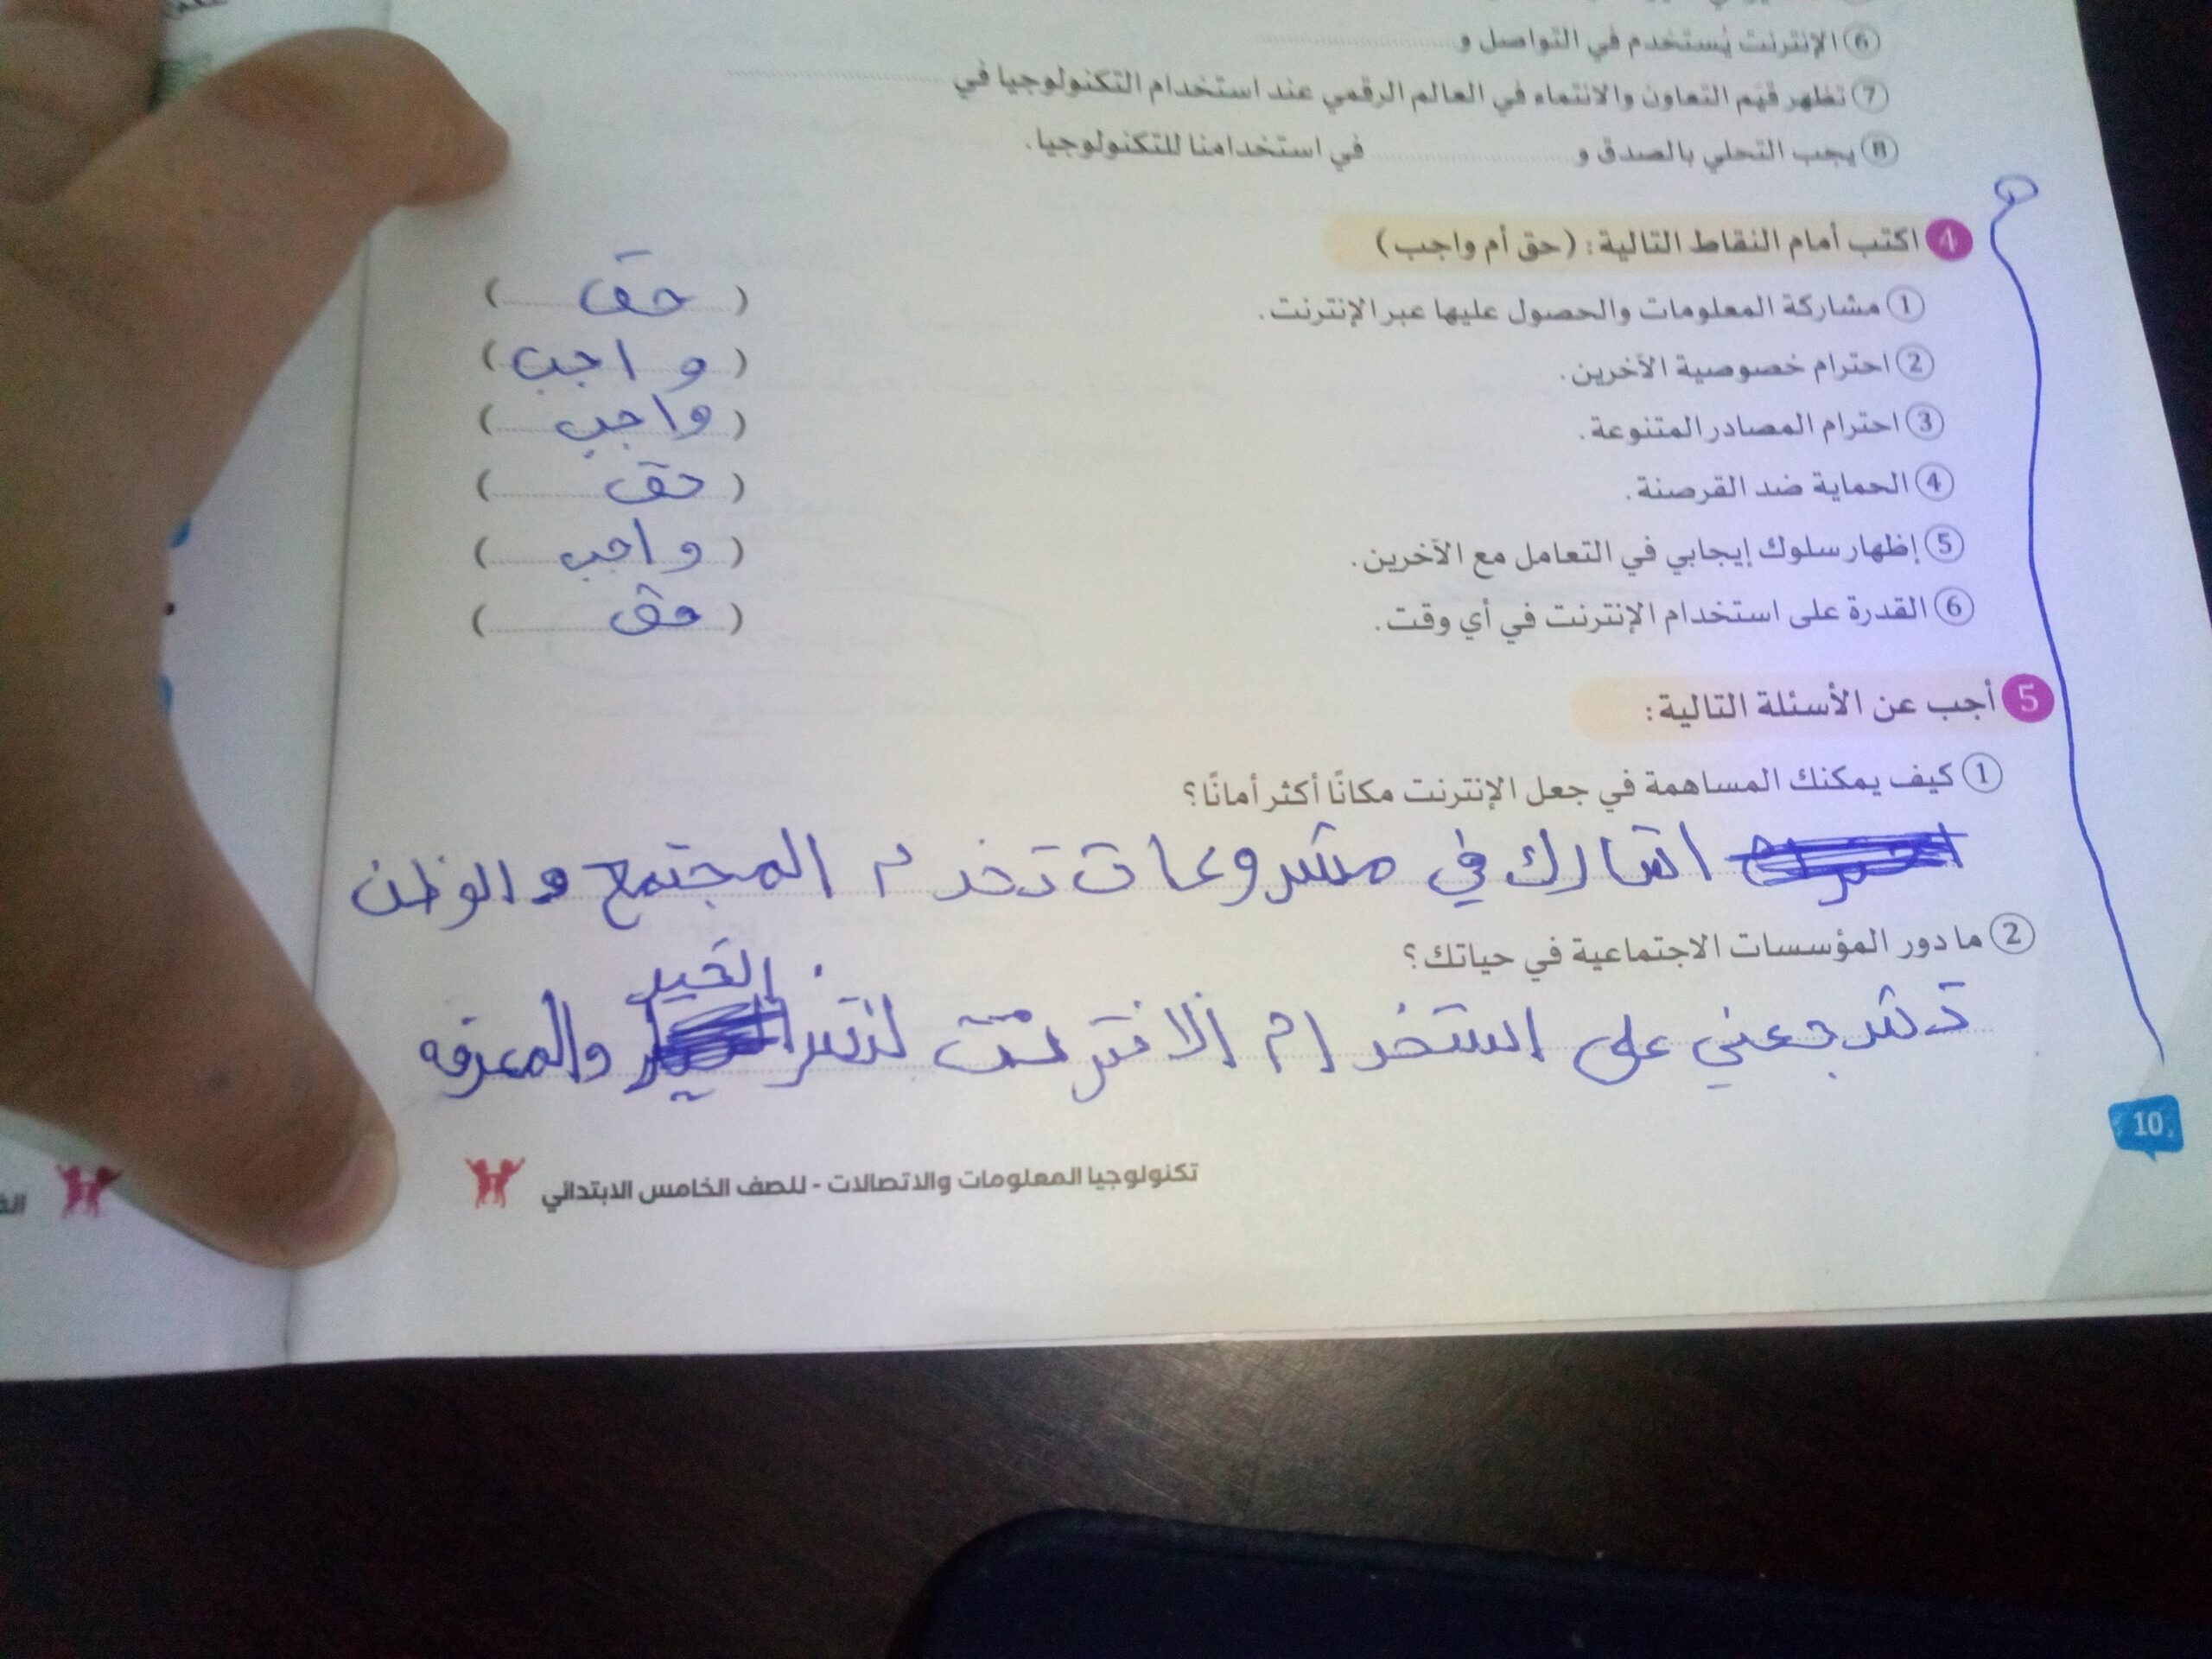 ⑥ الإنترنت يُستخدم في التواصل و
⑦ تظهر قيَم التعاون والانتماء في العالم الرقمي عند استخدام التكنولوجيا في
⑧ يجب التحلي بالصدق و ........ في استخدامنا للتكنولوجيا.
4 اكتب أمام النقاط التالية: (حق أم واجب)
① مشاركة المعلومات والحصول عليها عبر الإنترنت. (حق)
② احترام خصوصية الآخرين. (واجب)
③ احترام المصادر المتنوعة. (واجب)
④ الحماية ضد القرصنة. (حق)
⑤ إظهار سلوك إيجابي في التعامل مع الآخرين. (واجب)
⑥ القدرة على استخدام الإنترنت في أي وقت. (حق)
5 أجب عن الأسئلة التالية:
① كيف يمكنك المساهمة في جعل الإنترنت مكانًا أكثر أمانًا؟
اشارك في مشروعات تخدم المجتمع والوطن
② ما دور المؤسسات الاجتماعية في حياتك؟
تشجعني على استخدام الانترنت لنشر الخير والمعرفه
10
تكنولوجيا المعلومات والاتصالات - للصف الخامس الابتدائي